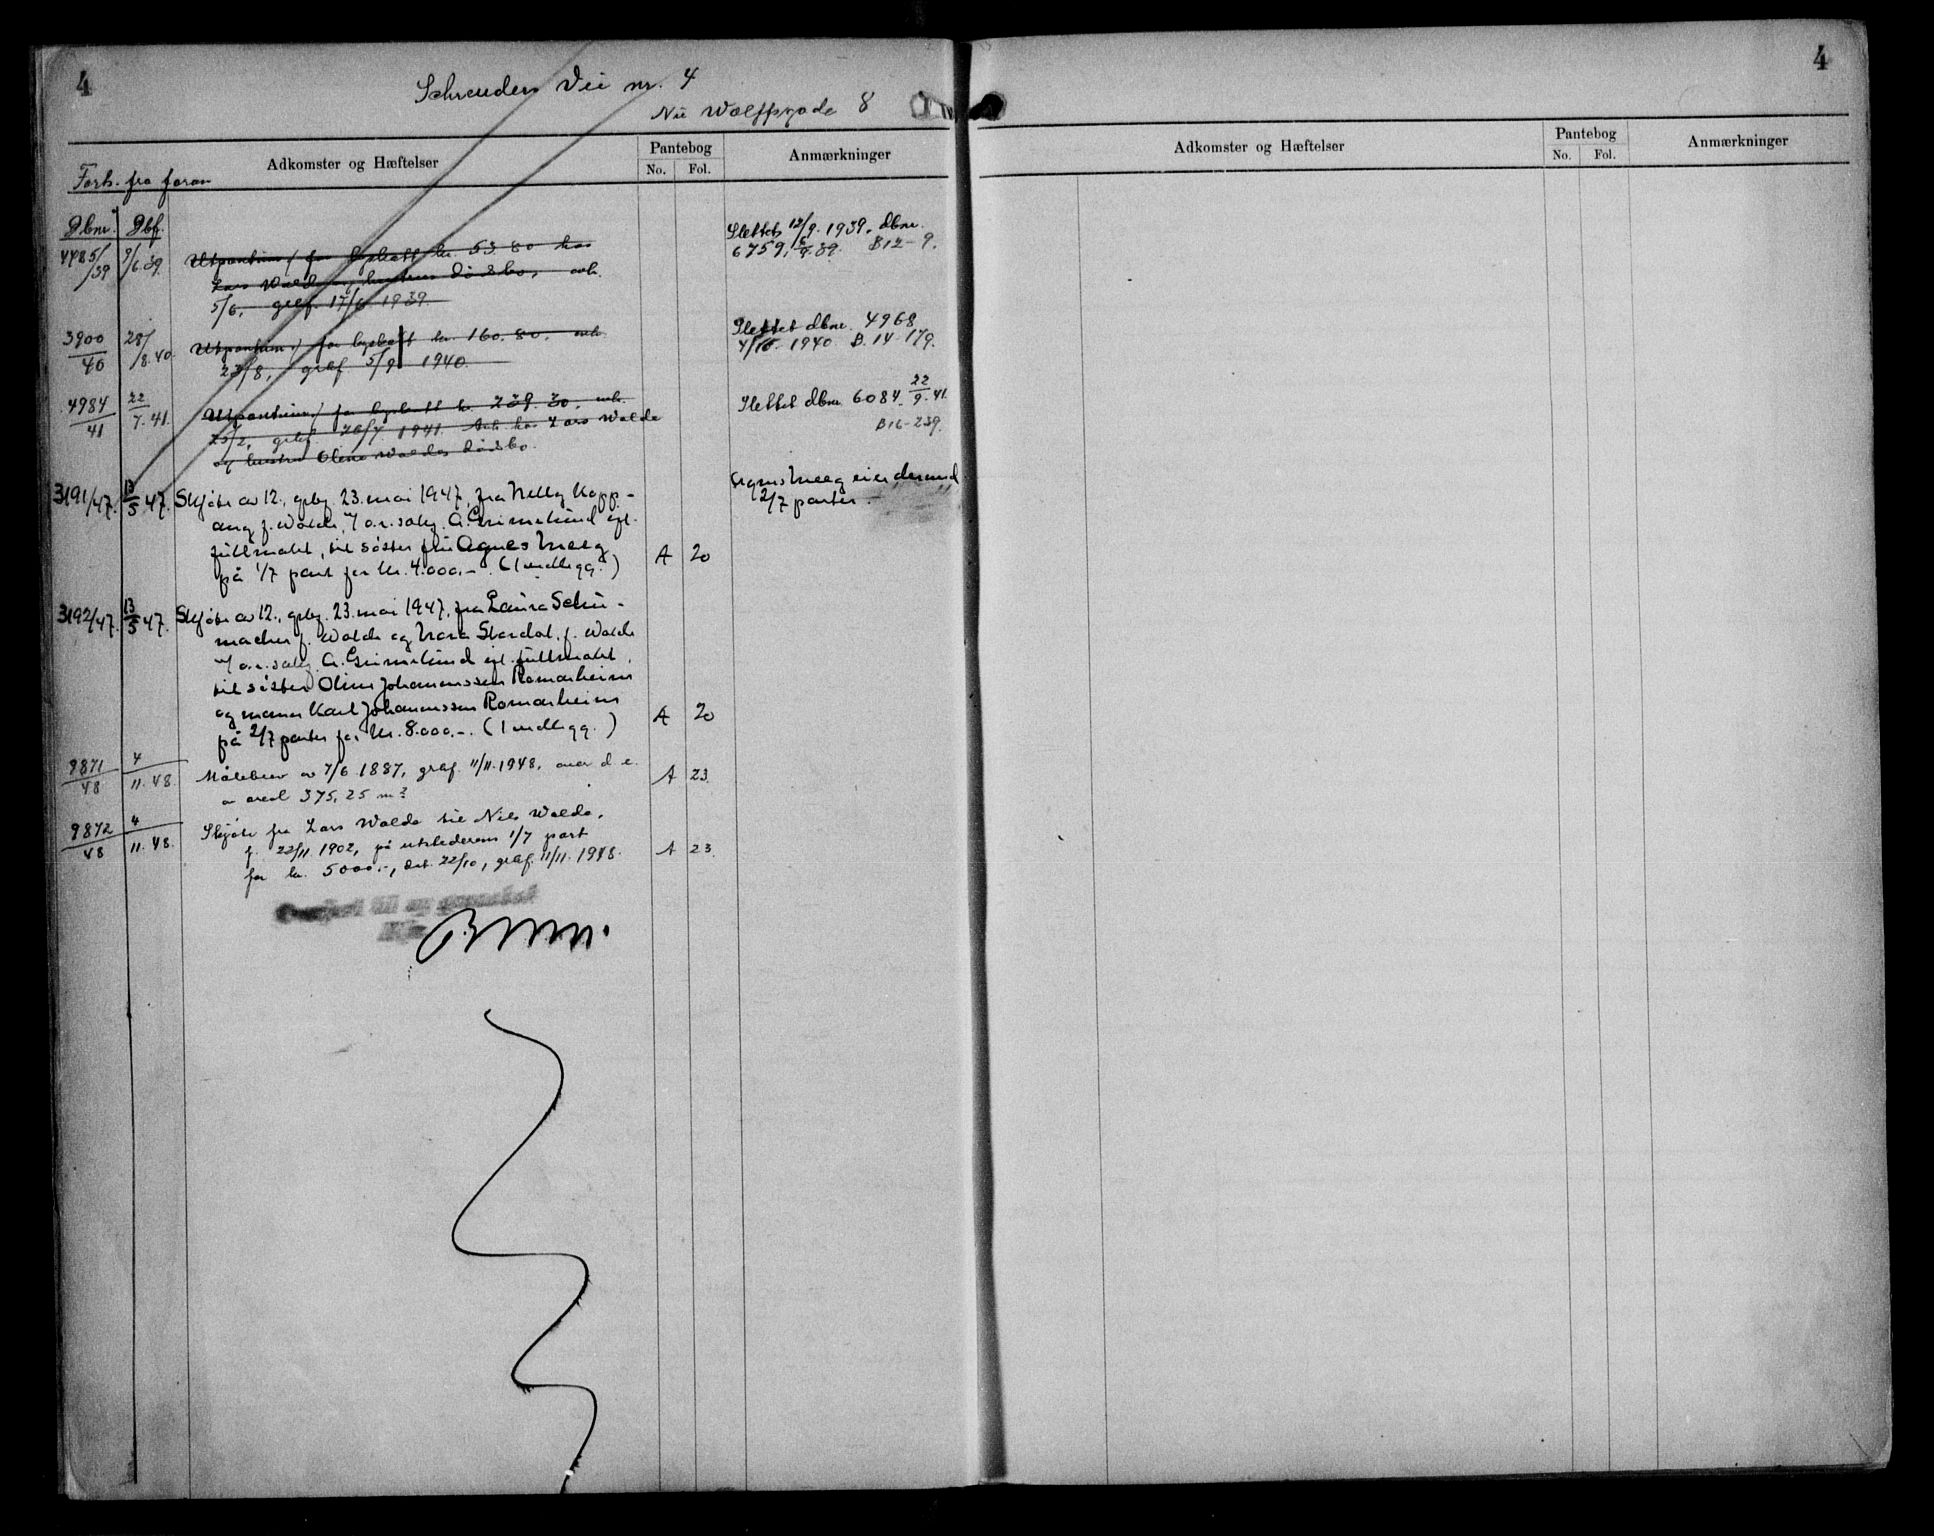 4
Schreuders Vei nr. 4
Nu Wolffsgade 8
Adkomster og Hæftelser
Pantebog
No. Fol.
Anmærkninger
Forts. fra foran
Dbnr. Dbf.
4485/39 9/6.39. Utpantning for byskatt kr. 53.80 hos
Lars Walde og hustrus dødsbo, avh.
5/6, grlf. 17/6 1939.
Slettet 12/9. 1939. dbnr.
6759, 39. B12-9.
3900/40 28/8.40 Utpantning for byskatt kr. 160.80. avh.
23/8, grlf 5/9 1940.
Slettet dbnr. 4968
4/10 1940 B.14-179.
4984/41 22/7.41. Utpantning for byskatt kr. 239.30, avh.
grlf. 26/7 1941. Avh. hos Lars Walde
og hustru Oline Waldes dødsbo.
Slettet dbnr. 6084. 22/9.41.
B16-239.
3191/47. 13/5 47. Skjøte av 12., grlyg. 23. mai 1947, fra Nelly Kopp-
ang f. Walde, v/ o.r.saks. A. Grimelund efl.
fullmakt, til søster fru Agnes Meeg
på 1/7 part for kr. 4.000.-. (1 vedlegg.) A 20
Agnes Meeg eier dermed
2/7 parter.
3192/47. 13/5 47. Skjøte av 12., grlyg. 23. mai 1947, fra Laura Schu-
macher f. Walde og Nora Stardal, f. Walde
v/ o.r.saks. A. Grimelund efl. fullmakt,
til søster Oline Johannessen Romarheim
og mann Karl Johannessen Romarheim
på 2/7 parter for kr. 8.000.-. (1 vedlegg.) A 20
9871/48 4/11.48. Målebrev av 7/6 1887, grlf. 11/11.1948, over d. e.
av areal 375,25 m² A 23.
9872/48 4/11.48. Skjøte fra Lars Walde til Nils Walde,
f. 22/11 1902, på utstederens 1/7 part
for kr. 5000.-, dat. 22/10, grlf. 11/11.1948. A 23.
Overført til ny grunnbok
4
Adkomster og Hæftelser
Pantebog
No. Fol.
Anmærkninger